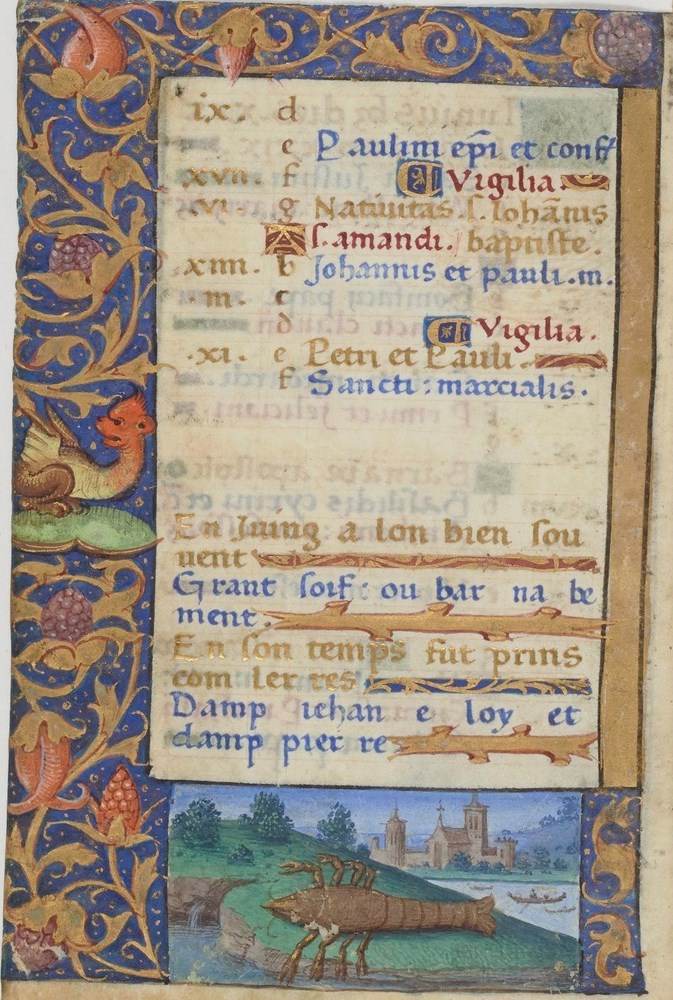 ix. d
e Paulini ep̃i et conf̃
xvii. f Vigilia
vi g Nativitas .s. Iohãnis
A s. amandi. baptiste.
xiiii. b Johannis et pauli .m.
iii. c
d Vigilia.
.xi. e Petri et Pauli
f Sancti : marcialis.
En Juing a lon bien sou
vent
Grant soif: ou bar na be
ment.
En son temps fut prins
com ler res
Damp iehan e loy et
damp pier re